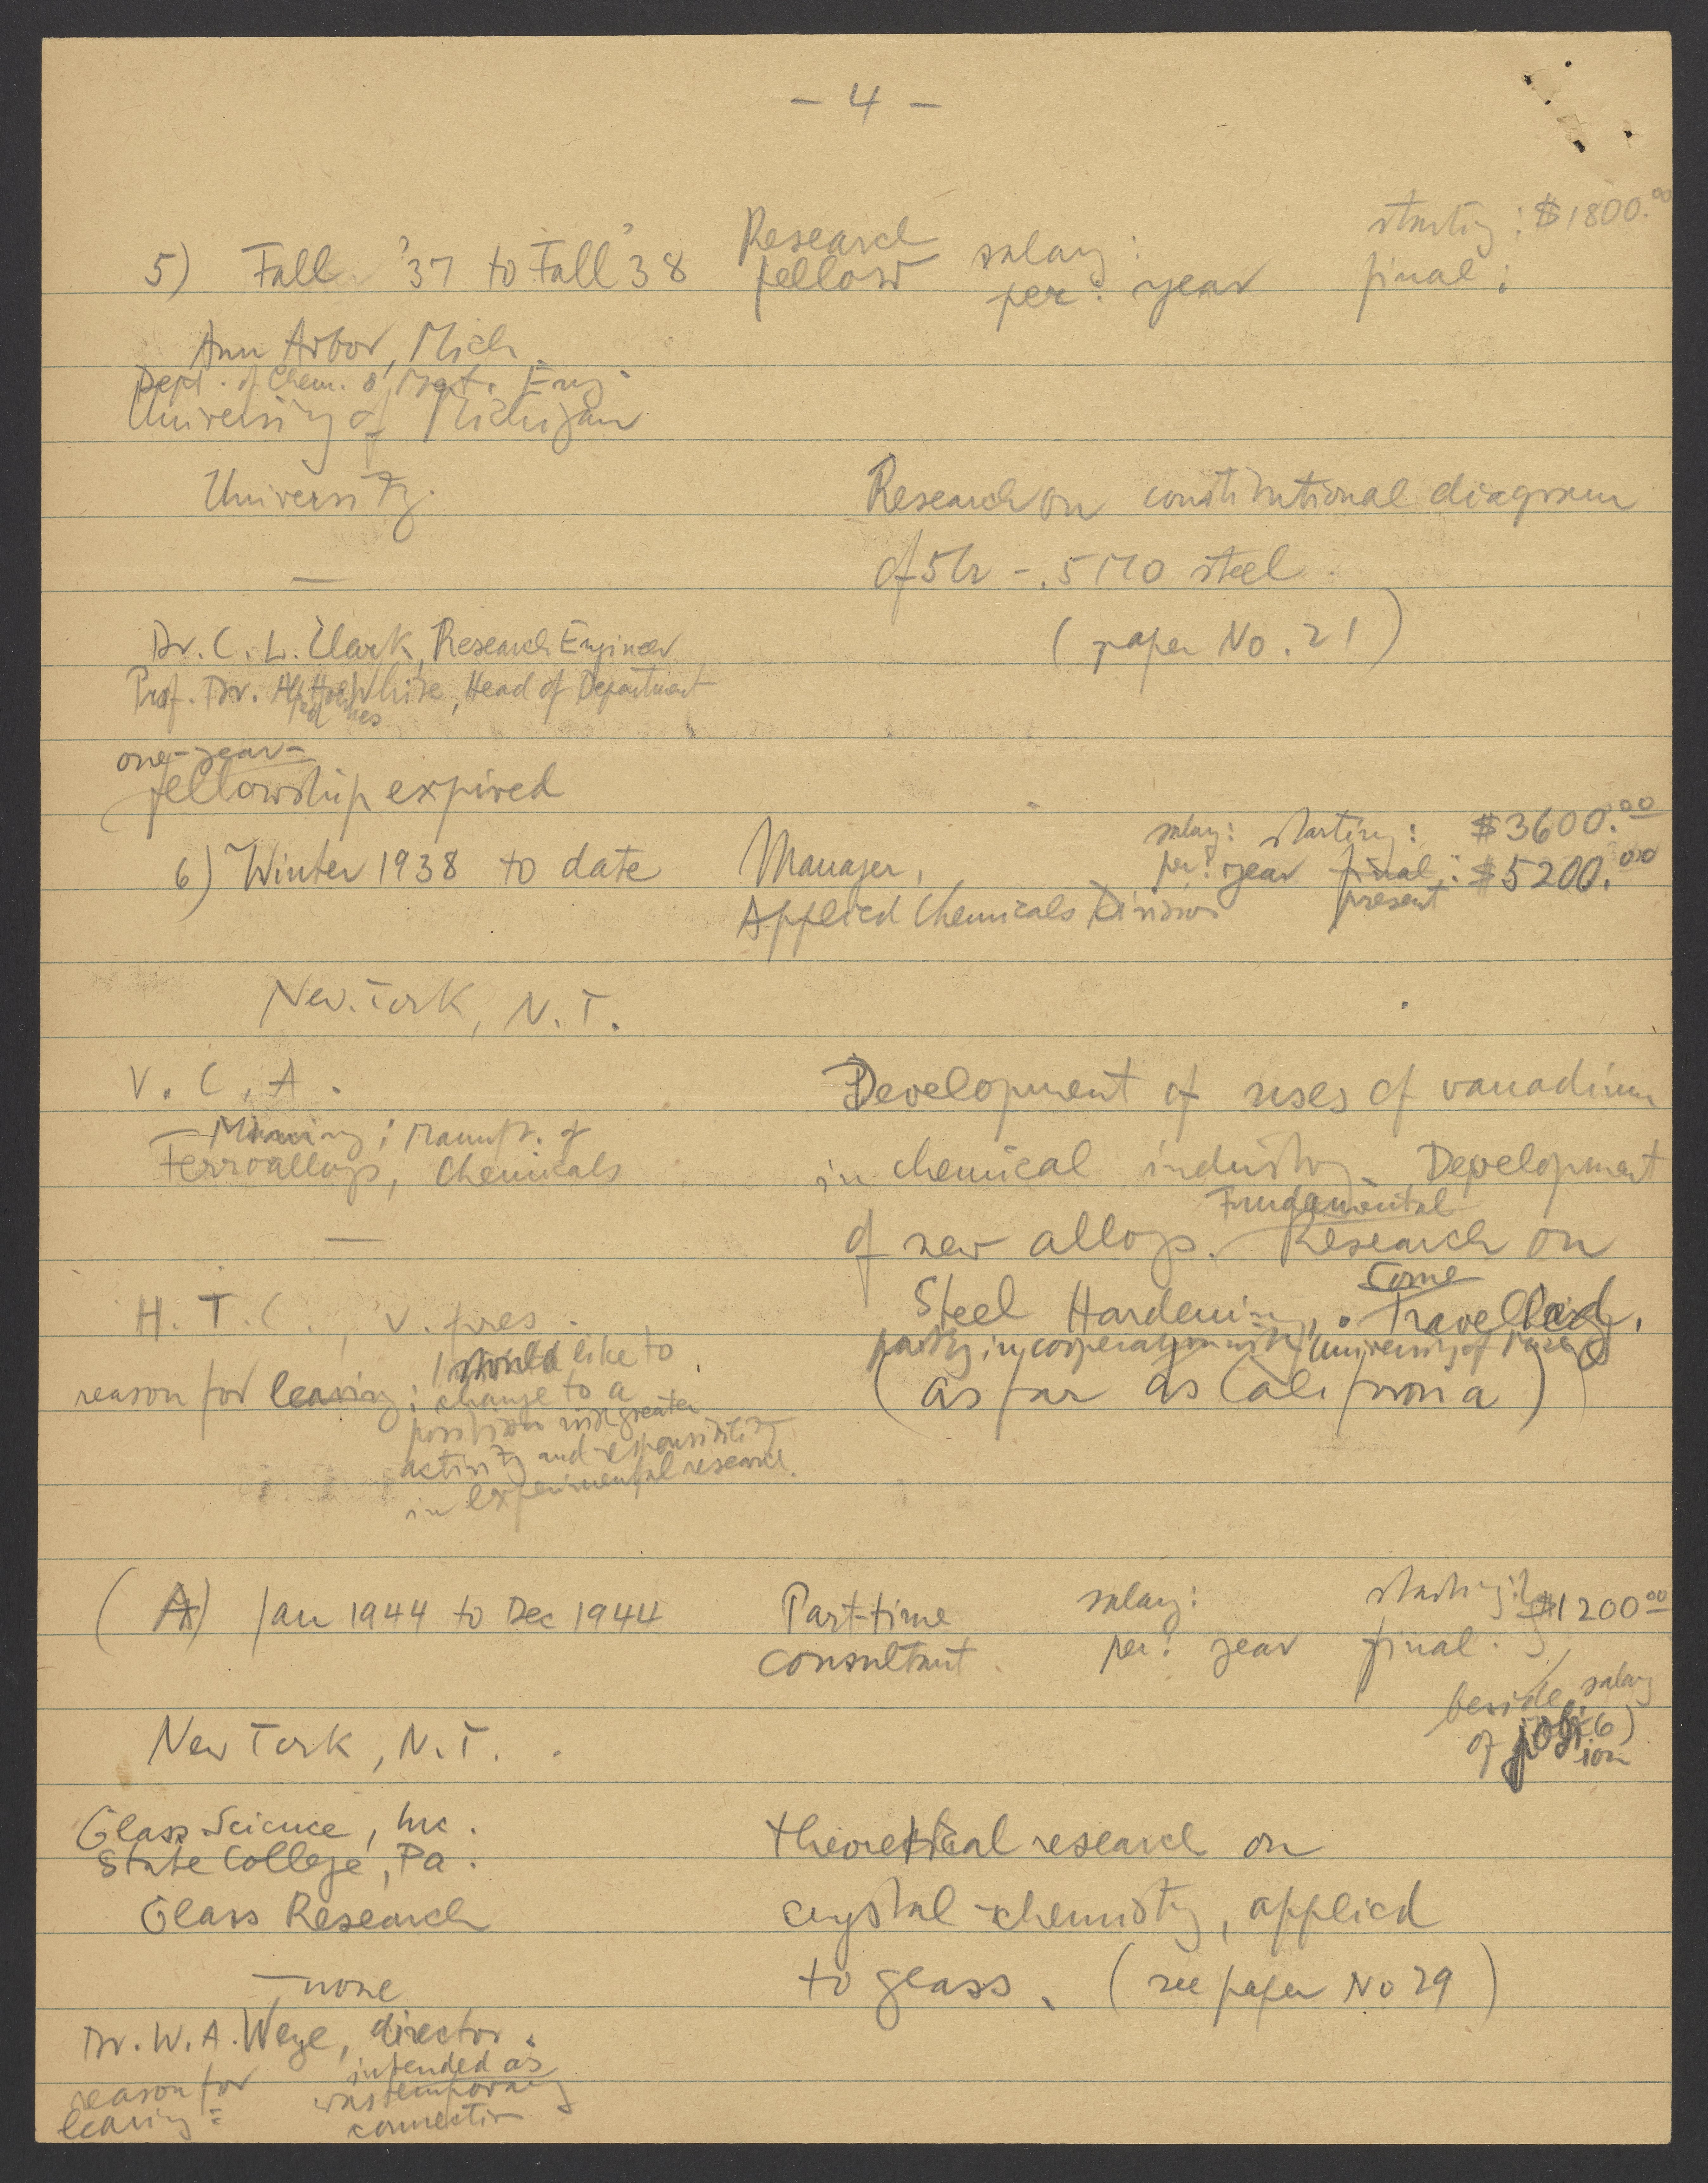 - 4 -
5) Fall '37 to Fall '38 Research fellow salary: per: year starting: $1800.00 final:
Ann Arbor, Mich.
Dept. of Chem. & Met. Eng.
University of Michigan
University.
Research on constitutional diagram
of 5Cr - .5 MO steel
—
(paper No. 21)
Dr. C. L. Clark, Research Engineer
Prof. Dr. White, Head of Department
one-year-
fellowship expired
6) Winter 1938 to date Manager, salary: starting: $3600.00
per: year final: $5200.00
present
Applied Chemicals Division
New York, N.Y.
V. C. A.
— Mining; Manufr. of
Ferroalloys, Chemicals
—
Development of uses of vanadium
in chemical industry. Development
of new alloys. Fundamental Research on
Steel Hardening, Some Travelling.
partly in cooperation with University of
(as far as California)
H. T. C., V. pres.
reason for leaving: I would like to
change to a
position with greater
activity and responsibility
in experimental research.
(A) Jan 1944 to Dec 1944 Part-time consultant. salary: per: year starting: final: } $1200.00
beside salary
of 6)
New York, N.Y.
Glass Science, Inc.
State College, Pa.
Glass Research
theoretical research on
crystal-chemistry, applied
to glass. (see paper No 29)
— none
Dr. W. A. Weyl, director.
reason for
leaving:
intended as
was temporary
connection